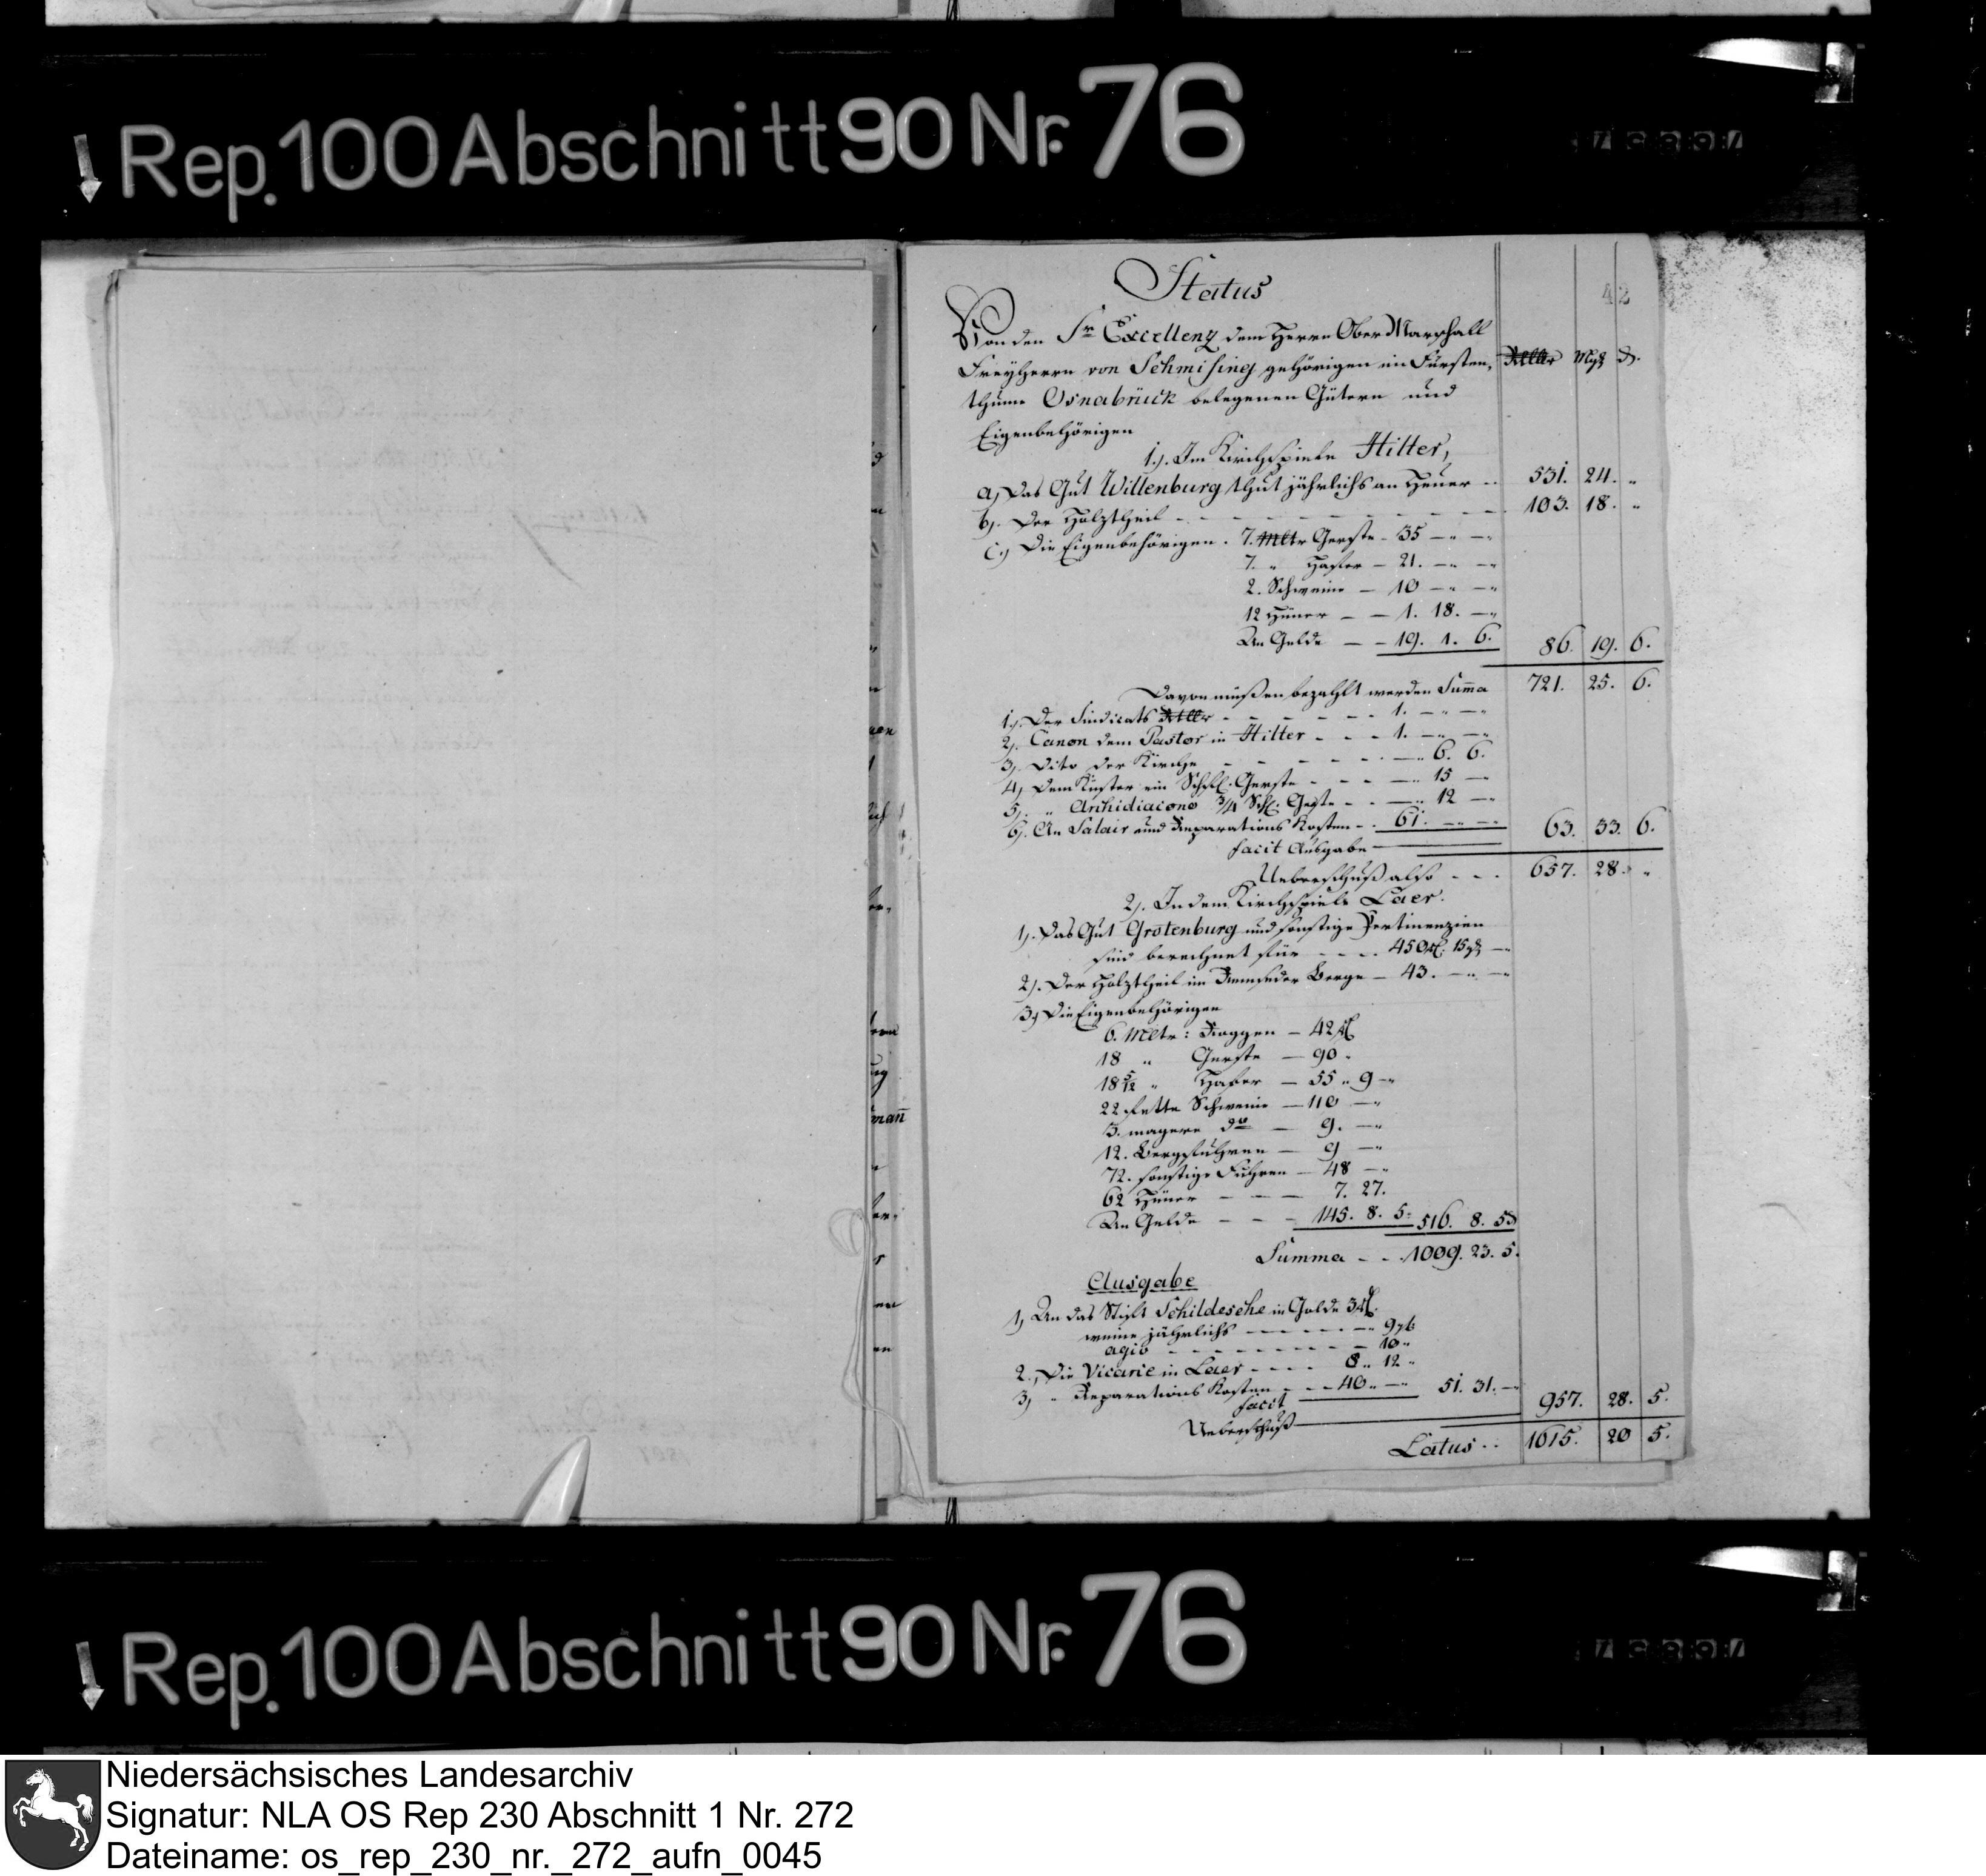 Rep. 100 Abschnitt 90 Nr. 76
42
Status
Von den Sr Excellenz dem Herrn Ober Marschall
Freyherrn von Schmising gehörigen im Fürsten- Rtlr Mgs d.
thume Osnabrück belegenen Gütern und
Eigenbehörigen
1.). Im Kirchspiele Hilter,
a, Das Gut Wittenburg thut jährlichs an Heuer -- 531. 24. "
b). Der Holztheil - - - - - - - - 103. 18. "
c.) Die Eigenbehörigen. 7. Mltr Gerste - 35 -" -"
7. " Hafer - 21. -" -"
2. Schweine - 10 -" -"
12 Hüner - - 1. 18. -"
An Gelde - - 19. 1. 6. 86. 19. 6.
Davon müßen bezahlt werden Suma 721. 25. 6.
1.). Der Sindicats Rtlr - - - - - 1. -" -"
2). Canon dem Pastor in Hilter - - - 1. -" -"
3). Dito der Kirche - - - - - -" 6. 6.
4) Dem Küster ein Schfl. Gerste - - - -" 15 -"
5). " Archidiacono 3/4 Schfl. Gerste - - -" 12 -"
6). An Salair und Reparations Kosten - . 61. -" -" 63. 33. 6.
facit Ausgabe
Ueberschuß also - - - 657. 28. "
2). In dem Kirchspiele Laer.
1). Das Gut Grotenburg und sonstige Pertinenzien
sind berechnet für - - - . 450 rtl. 15 gs -"
2). Der Holztheil im Remseder Berge - 43. -" -"
3.) Die Eigenbehörigen
6. Mltr: Roggen - 42 rtl
18 " Gerste - 90 "
18 5/12 " Hafer - 55 " 9 -"
22 fette Schweine - 110 -"
3. magere do - 9. -"
12. Bergfuhren - 9 -"
72. sonstige Fuhren - 48 -"
62 Hüner - - - 7. 27.
An Gelde - - - 145. 8. 5. 516. 8. 5 d
Summa - - . 1009. 23. 5.
Ausgabe
1) An das Stift Schildesche in Golde 3 rtl.
jährlichs - - - - - 9 " 6
agio - - - - - - - 10 "
2., Die Vicarie in Laer - - - - 8 " 12 "
3) " Reparations Kosten - - - 40 " -" 51. 31. -"
facit 957. 28. 5.
Ueberschuß
Latus . . 1615. 20 5.
mañ
Rep. 100 Abschnitt 90 Nr. 76
Niedersächsisches Landesarchiv
Signatur: NLA OS Rep 230 Abschnitt 1 Nr. 272
Dateiname: os_rep_230_nr._272_aufn_0045